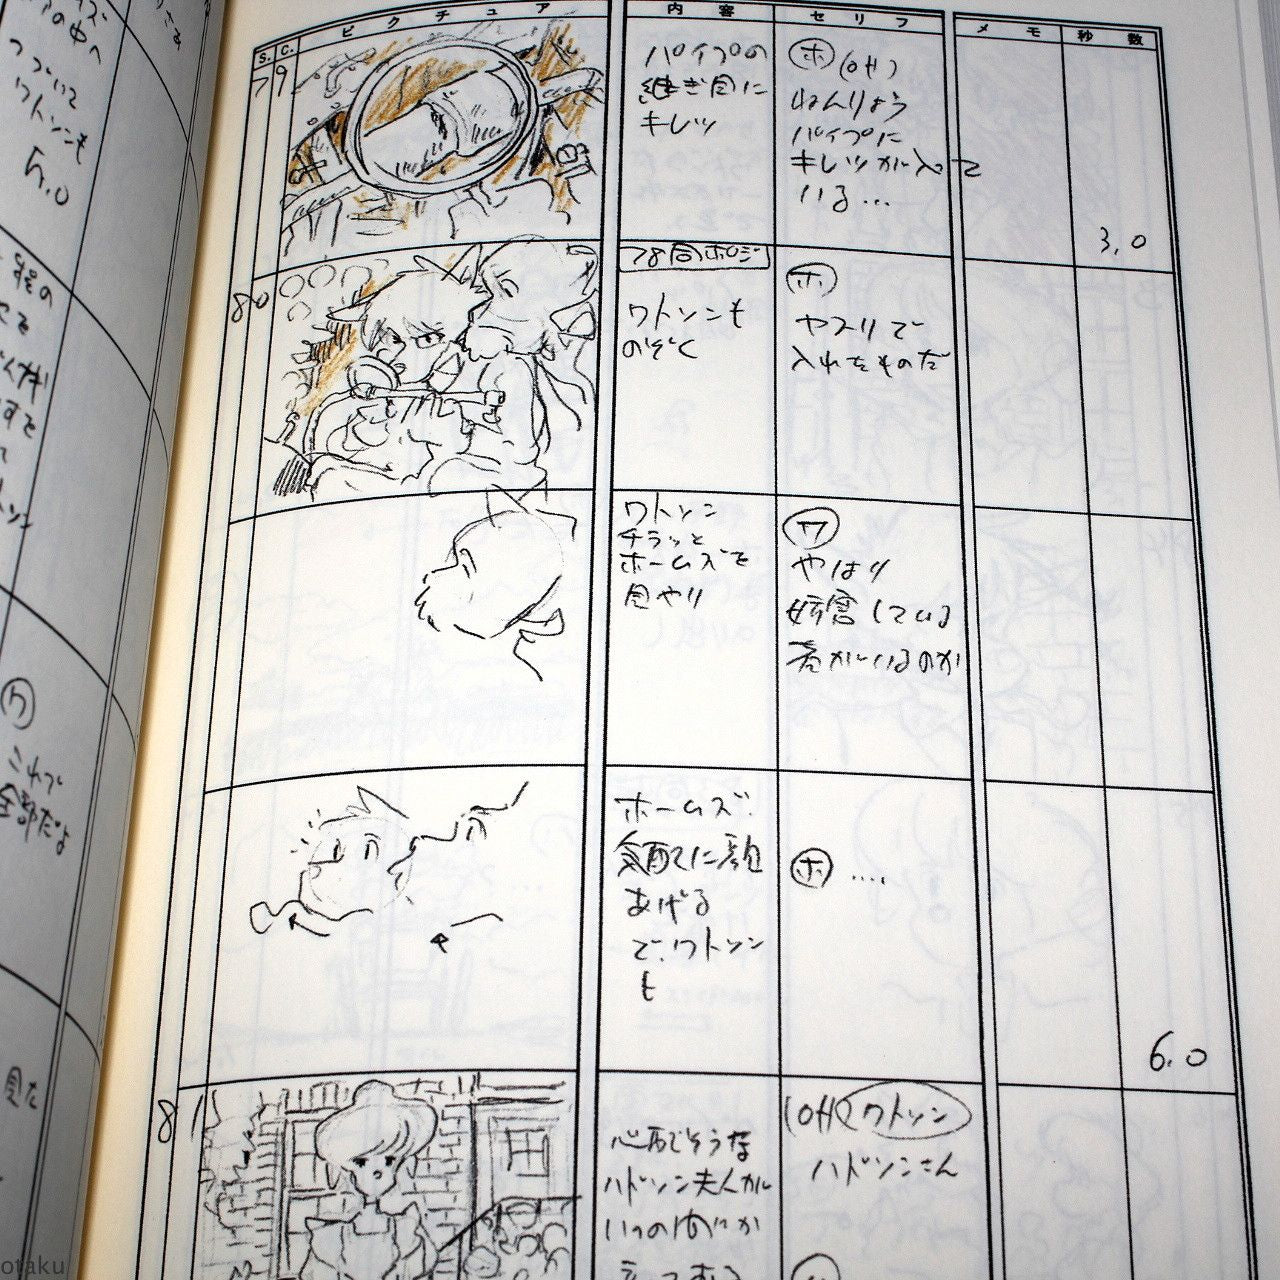 S.
C.
ピクチュア
内容
セリフ
メモ
秒数
79
パイプの
継ぎ目に
キレツ
ホ (off)
ねんりょう
パイプに
キレツが入って
いる…
3.0
80
78同ポジ
ワトソンも
のぞく
ホ
ヤスリで
入れたものだ
ワトソン
チラッと
ホームズを
見やり
ワ
やはり
妨害している
者がいるのか
ホームズ.
気配に顔
あげる
で、ワトソン
も
ホ ‥‥
6.0
81
心配そうな
ハドソン夫人が
いつの間にか
(off) ワトソン
ハドソンさん
つづいて
ワトソンも
5.0
ワ
これで
全部だよ
見た
otaku